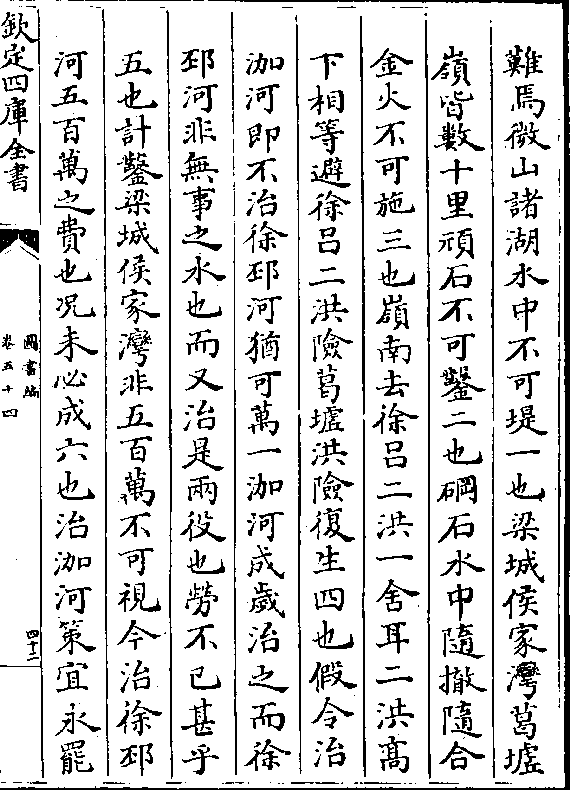 難焉微山諸湖水中不可堤一也梁城侯家灣葛墟
嶺皆數十里頑石不可鑿二也磵石水中隨撤隨合
金火不可施三也嶺南去徐吕二洪一舍耳二洪髙
下相等避徐吕二洪險葛墟洪險復生四也假令治
泇河即不治徐邳河猶可萬一泇河成歲治之而徐
邳河非無事之水也而又治是兩役也勞不已甚乎
五也計鑿梁城侯家灣非五百萬不可視今治徐邳
河五百萬之費也况未必成六也治泇河策宜永罷
欽定四庫全書
圖書編
卷五十四
四十二